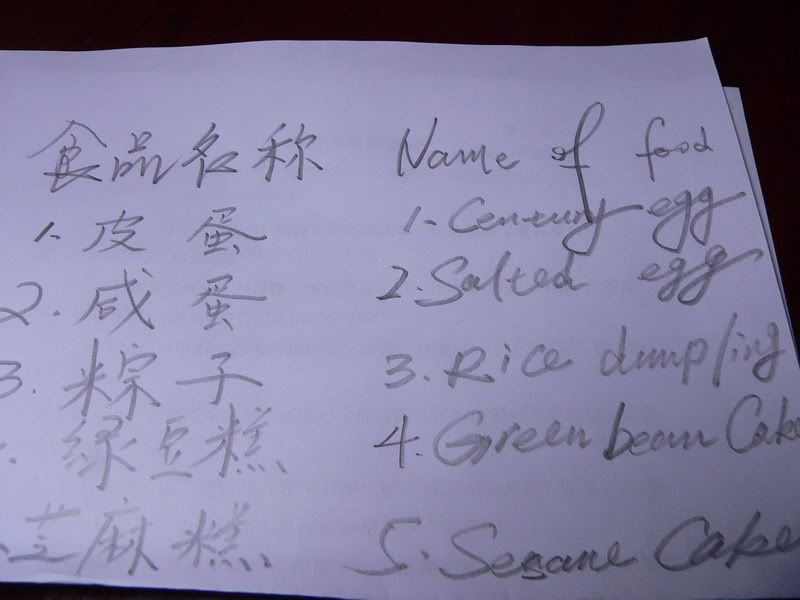 食品名称 Name of food
1. 皮蛋 1. Century egg
2. 咸蛋 2. Salted egg
3. 粽子 3. Rice dumpling
. 绿豆糕 4. Green bean Cake
. 芝麻糕 5. Sesane Cake